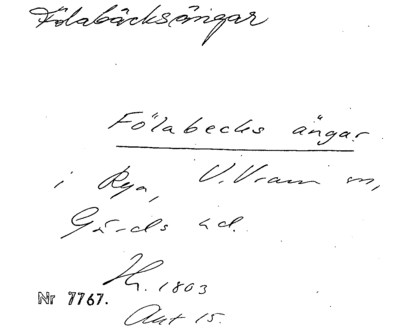 Fölabäcksängar
Fölabecks ängar
i Rya, V. Vram sn,
Gärds hd.
Hr. 1803
Nr 7767.
Akt 15.